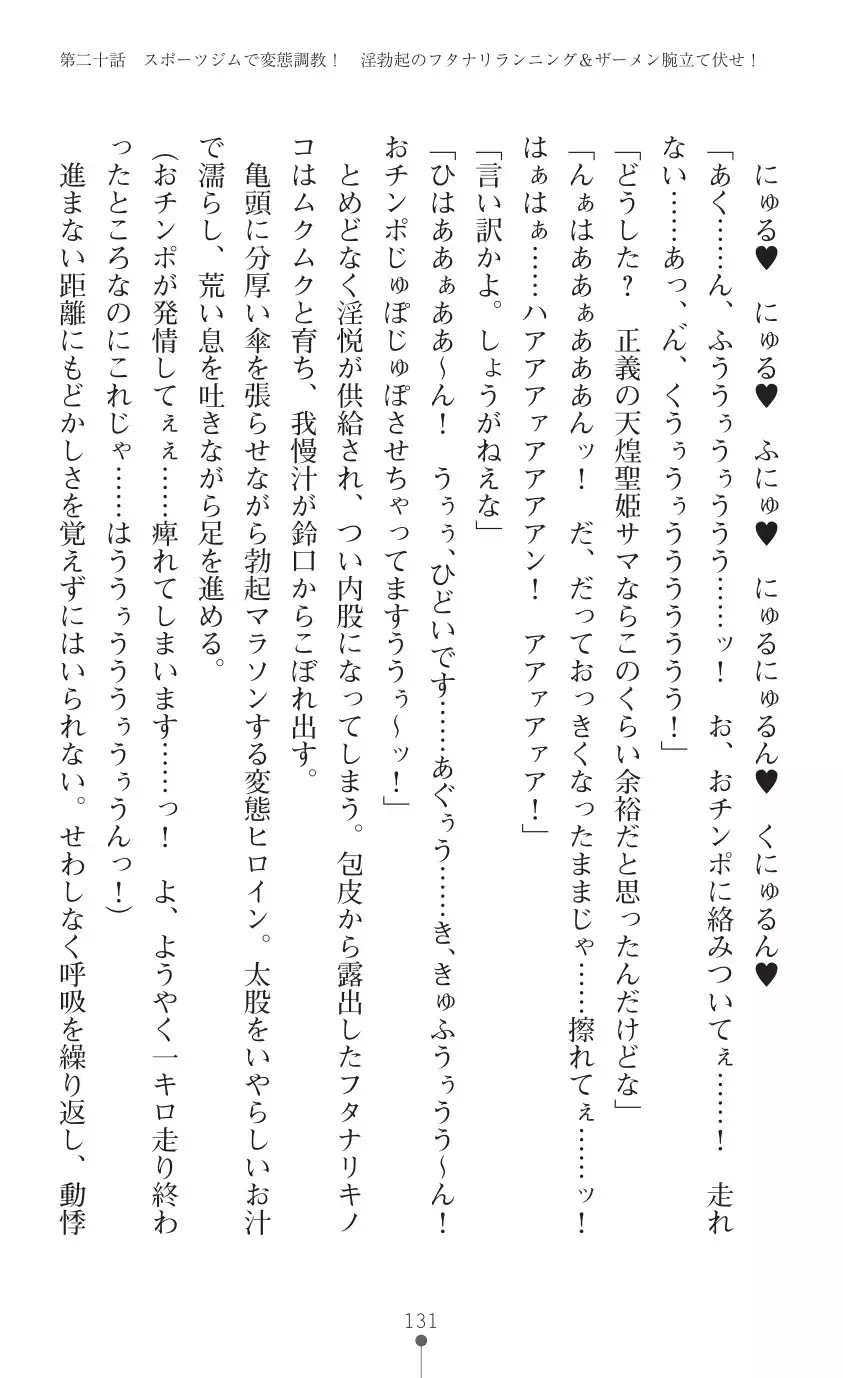 第二十話　スポーツジムで変態調教！　淫勃起のフタナリランニング＆ザーメン腕立て伏せ！
　にゅる♥　にゅる♥　ふにゅ♥　にゅるにゅるん♥　くにゅるん♥
「あく……ん、ふううぅうぅううう……ッ！　お、おチンポに絡みついてぇ……！　走れ
ない……あっ、ん゛、くうぅうぅううううううう！」
「どうした？　正義の天煌聖姫サマならこのくらい余裕だと思ったんだけどな」
「んぁはああぁあああんッ！　だ、だっておっきくなったままじゃ……擦れてぇ……ッ！
はぁはぁ……ハアアアァアアアアアン！　アアァアァア！」
「言い訳かよ。しょうがねえな」
「ひはああぁああ～ん！　うぅぅ、ひどいです……あぐぅう……き、きゅふうぅうう～ん！
おチンポじゅぽじゅぽさせちゃってますううぅ～ッ！」
　とめどなく淫悦が供給され、つい内股になってしまう。包皮から露出したフタナリキノ
コはムクムクと育ち、我慢汁が鈴口からこぼれ出す。
　亀頭に分厚い傘を張らせながら勃起マラソンする変態ヒロイン。太股をいやらしいお汁
で濡らし、荒い息を吐きながら足を進める。
（おチンポが発情してぇぇ……痺れてしまいます……っ！　よ、ようやく一キロ走り終わ
ったところなのにこれじゃ……はううぅうううぅうぅうんっ！）
　進まない距離にもどかしさを覚えずにはいられない。せわしなく呼吸を繰り返し、動悸
131